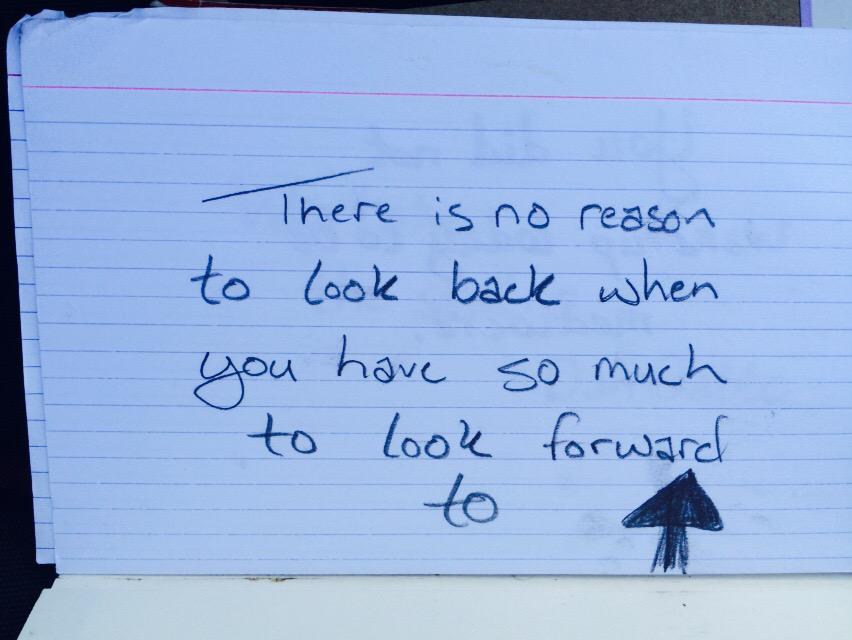 There is no reason
to look back when
you have so much
to look forward
to